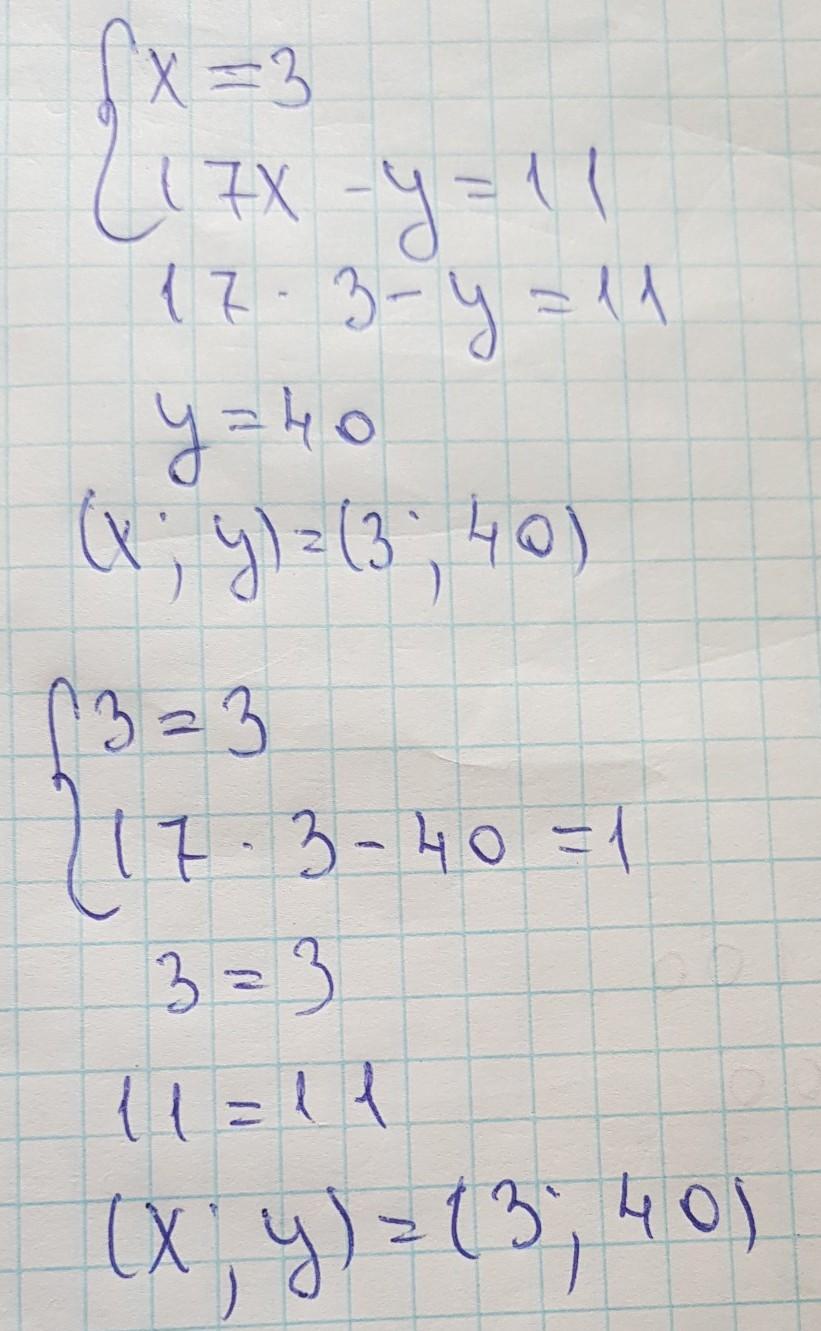 { x = 3
17x - y = 11
17 · 3 - y = 11
y = 40
(x; y) = (3; 40)
{ 3 = 3
17 · 3 - 40 = 1
3 = 3
11 = 11
(x; y) = (3; 40)